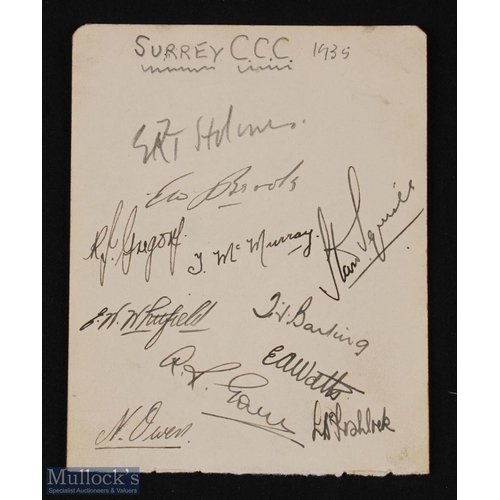 SURREY C.C.C. 1935
ERT Holmes.
EW Brooks
R.J. Gregory.
T. McMurray.
Stan Squires
E.W. Whitfield
T.H. Barling
EAWatts
A. R. Gover
N. Owen
L. B. Fishlock
Mullock's
Specialist Auctioneers & Valuers